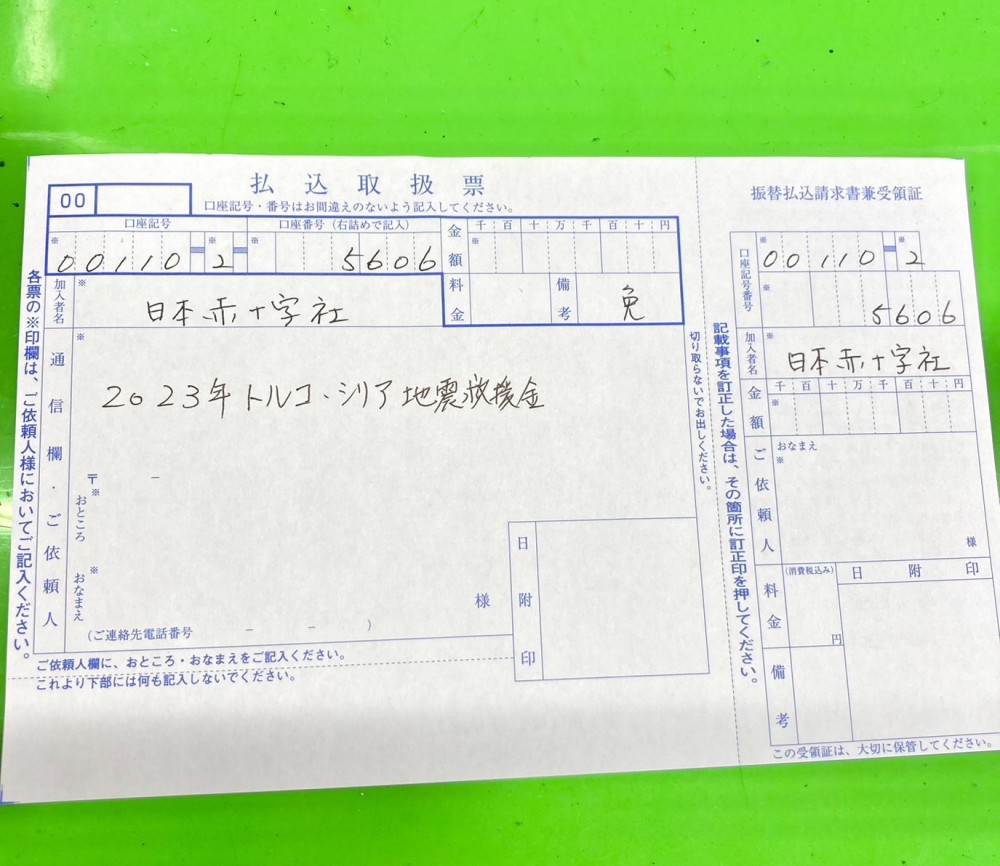 00
払込取扱票
口座記号・番号はお間違えのないよう記入してください。
口座記号
口座番号(右詰めで記入)
※ 00110 ※ 2 ※ 5606
金額
千百十万千百十円
※
加入者名
※
日本赤十字社
料金
備考
免
各票の※印欄は、ご依頼人様においてご記入ください。
通信欄・ご依頼人
※
2023年トルコ・シリア地震救援金
〒 ー
※
おところ
※
おなまえ
様
(ご連絡先電話番号 ー ー )
日附印
ご依頼人欄に、おところ・おなまえをご記入ください。
これより下部には何も記入しないでください。
切り取らないでお出しください。
記載事項を訂正した場合は、その箇所に訂正印を押してください。
振替払込請求書兼受領証
口座記号番号
※ 00110 ※ 2
※ 5606
加入者名
※
日本赤十字社
金額
千百十万千百十円
※
ご依頼人
おなまえ
※
様
料金
(消費税込み)
円
日附印
備考
この受領証は、大切に保管してください。